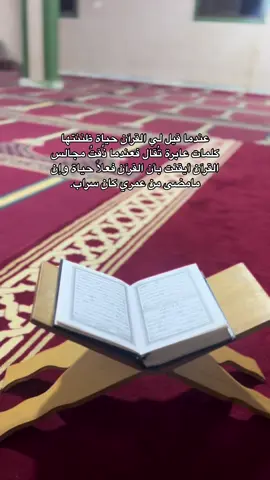 عندما قيل لي القرآن حياة ظننتها
كلمات عابرة تُقال فعندما ذُقتُ مجالس
القرآن أيقنت بأن القرآن فعلاً حياة وإن
مامضى من عمري كان سراب.